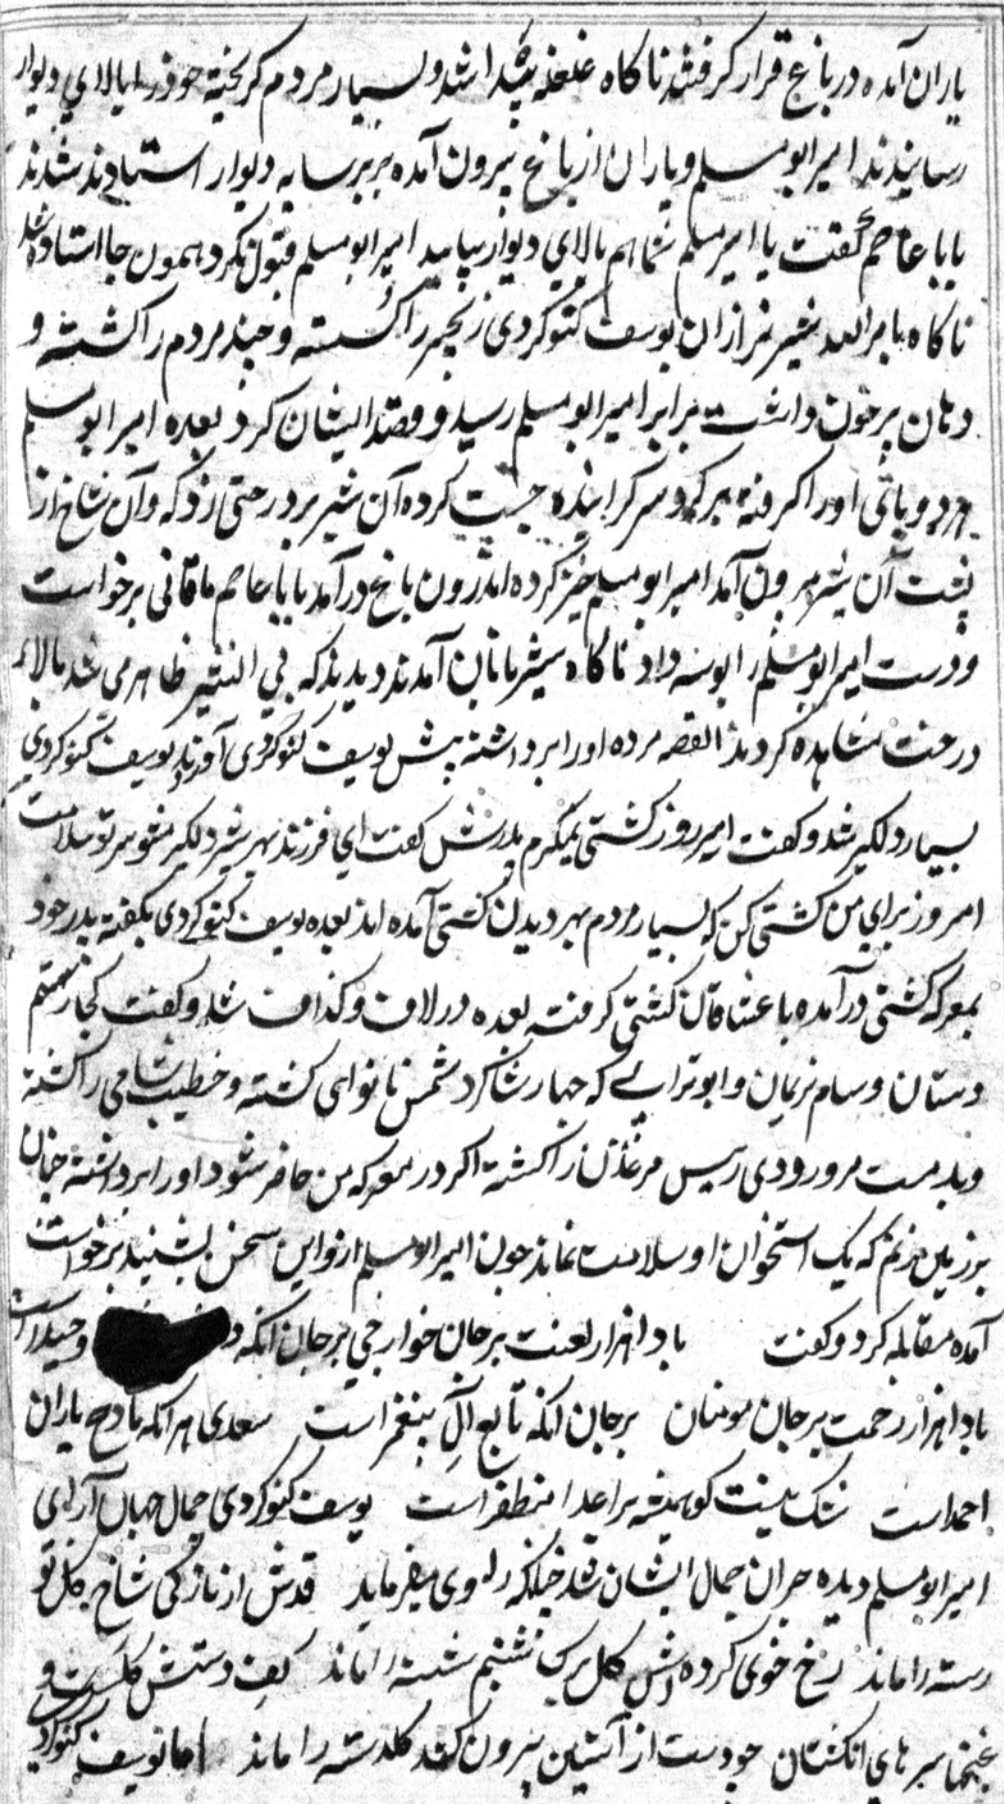 یاران آمده در باغ قرار کرفتند ناکاه غلغله پیدا شد و بسیار مردم کریخته خود را ببالای دیوار
رسانیدند امیر ابو مسلم و یاران از باغ بیرون آمده بزیر سایه دیوار استاده شدند
بابا عاصم گفت یا امیر مسلم شما هم بالای دیوار بیایید امیر ابومسلم قبول نکرد همون جا استاده شد
ناکاه بامر الله شیر نر از ان یوسف کنو کردی زنجیر را کسسته و چند مردم را کشته و
دهان پر خون داشت برابر امیر ابو مسلم رسید و قصد ایشان کرد بعده امیر ابو مسلم
هر دو پائی او را کرفته بر کرد سر کردانیده جست کرده آن شیر بر درختی زد که آن شاخ از
پشت آن شیر بیرون آمد امیر ابو مسلم خیز کرده اندرون باغ در آمد بابا عاصم ماقانی برخواست
و دست امیر ابو مسلم را بوسه داد ناکاه شیربانان آمدند دیدند که پی شیر ظاهر می شد بالای
درخت مشاهده کردند القصه مرده او را برداشته پیش یوسف کنو کردی آوردند یوسف کنو کردی
بسیار دلکیر شد و کفت امیروز کشتی نمیکرم پدرش کفت ای فرزند بهر شیر دلکیر مشو سر تو سلامت
امروز برای من کشتی کن که بسیار مردم بهر دیدن کشتی آمده اند بعده یوسف کنو کردی بکفته پدر خود
بمعرکه کشتی در آمده با کشتی کرفته بعده در لاف و کذاف شد و کفت کجا رستم
دستان و سام نریمان و ابو ترابی که چهار شاکرد شمس نانوای کشته و خطیب شامی را کشته
و بدمست مرورودی رییس را کشته اکر در معرکه من حاضر شود او را برداشته چنان
بر زمین بزنم که یک استخوان او سلامت نماند چون امیر ابو مسلم از و این سخن بشنید برخواست
آمده مقابله کرد و کفت باد هزار لعنت بر جان خوارجی بر جان انکه و حیدر است
باد هزار رحمت بر جان مومنان بر جان انکه تابع آل پیغمبر است سعدی هر انکه مادح یاران
احمد است شک نیست کو همیشه بر اعدا مظفر است یوسف کنو کردی جمال جهان آرای
امیر ابو مسلم دیده حیران جمال ایشان شد چنانکه راوی میفرماید قدش از نازکی شاخ کل نو
رسته را ماند رخ خوی کرده اش کل برک شبنم شسته را ماند کف دستش کلست و
غنچها سرهای انکشتان چو دست از آستین بیرون کند کلدسته را ماند اما یوسف کنو کردی